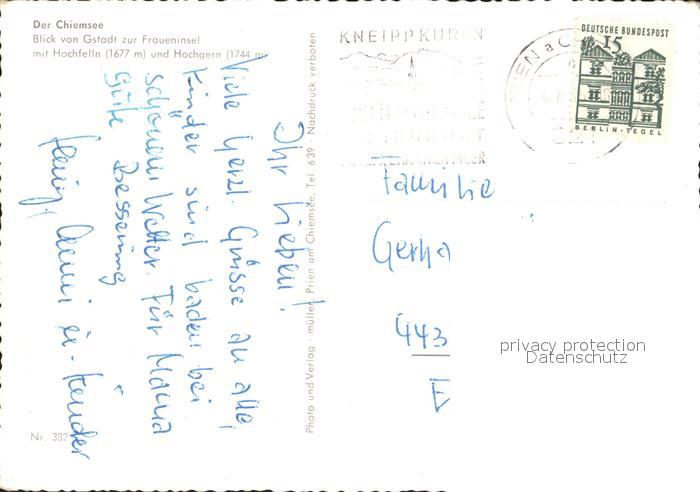 Der Chiemsee
Blick von Gstadt zur Fraueninsel
mit Hochfelln (1677 m) und Hochgern (1744 m)
Ihr Lieben!
Viele herzl. Grüsse an alle,
Kinder sind baden bei
schönem Wetter. Für Mama
gute Besserung
Nr. 382
Photo und Verlag · müller, Prien am Chiemsee, Tel. 639 · Nachdruck verboten
KNEIPPKUREN
DEUTSCHE BUNDESPOST
15
BERLIN-TEGEL
Familie
Gerha
443
privacy protection
Datenschutz